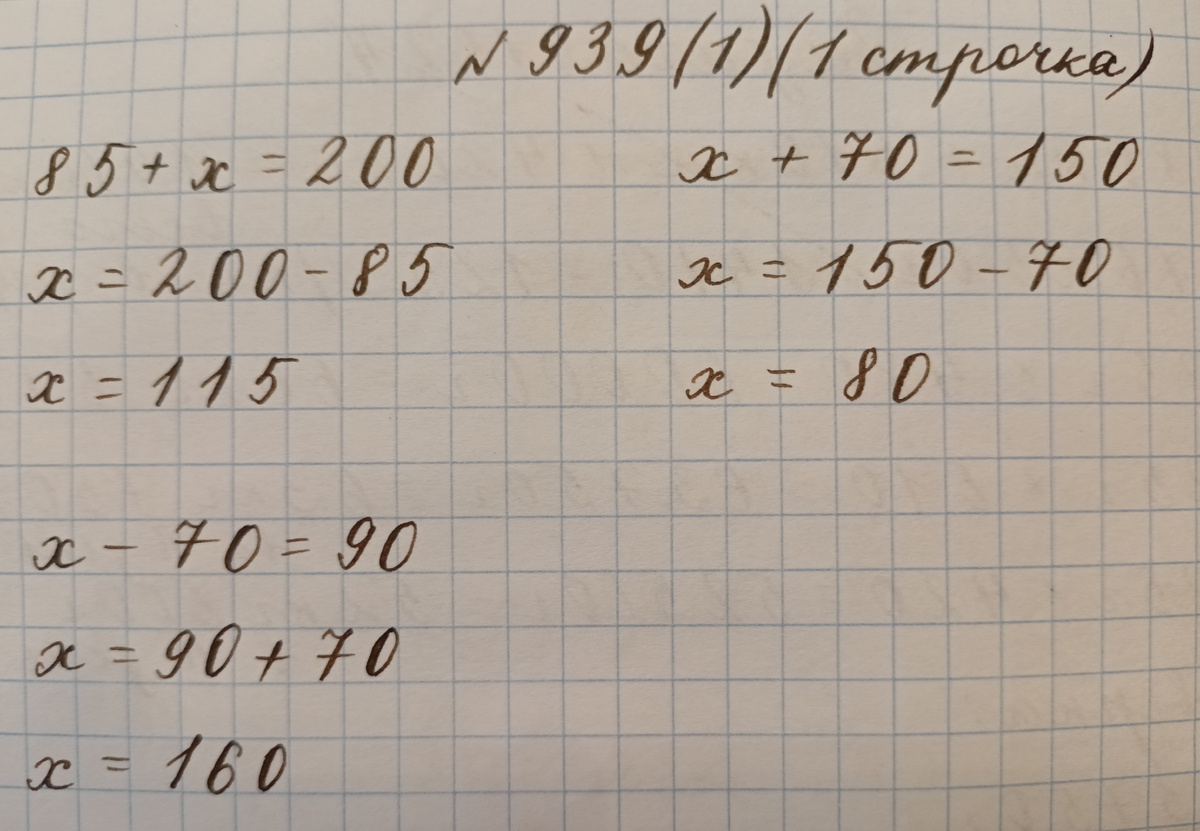 № 939 (1) (1 строчка)
85 + x = 200
x = 200 - 85
x = 115
x + 70 = 150
x = 150 - 70
x = 80
x - 70 = 90
x = 90 + 70
x = 160